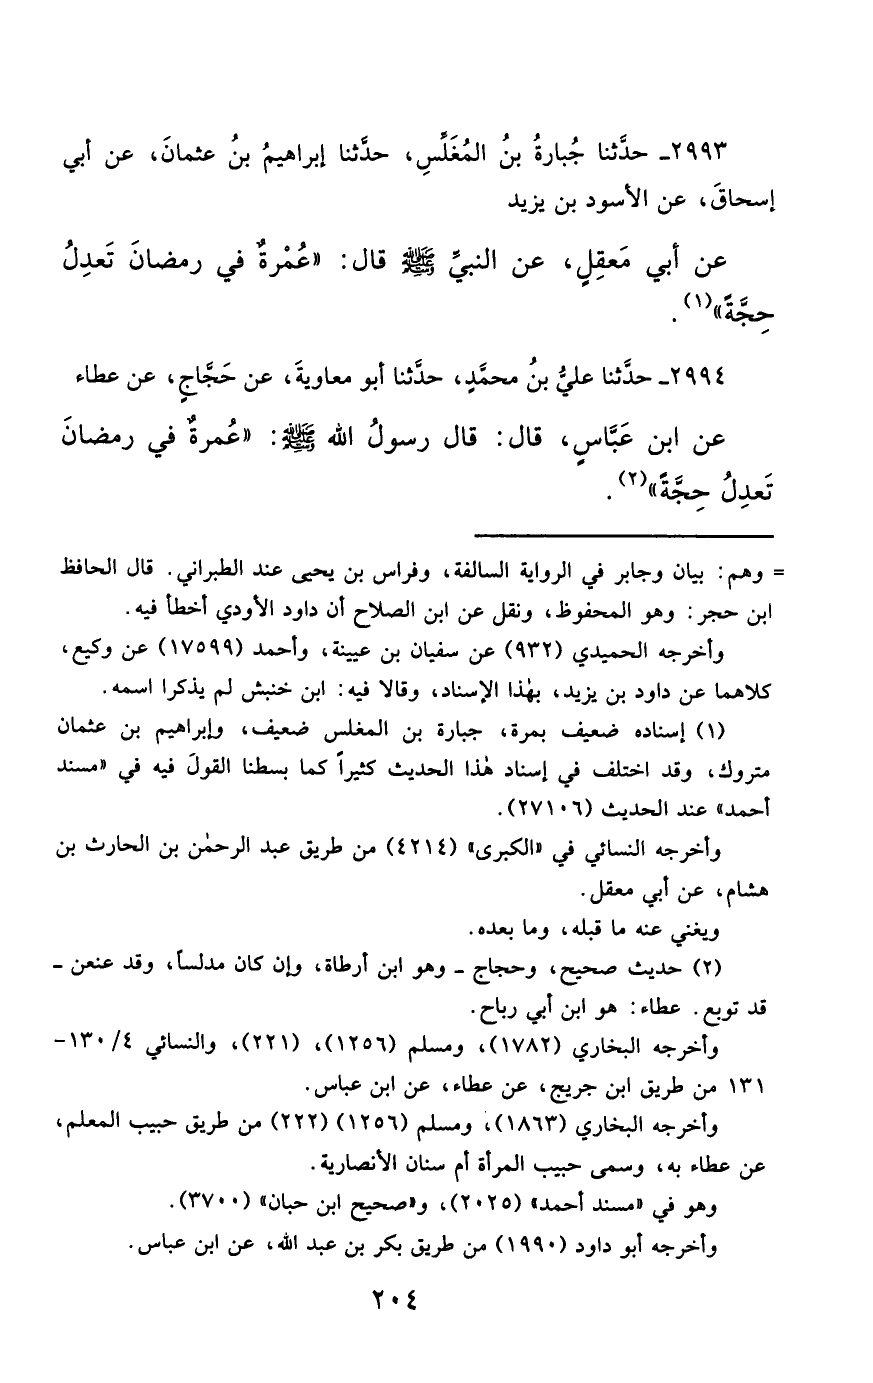 ٢٩٩٣ـ حدَّثنا جُبارةُ بنُ المُغَلِّسِ، حدَّثنا إبراهيمُ بنُ عثمانَ، عن أبي
إسحاقَ، عن الأسود بن يزيد
عن أبي مَعقِلٍ، عن النبيِّ ﷺ قال: «عُمْرةٌ في رمضانَ تَعدِلُ
حِجَّةً»(١).
٢٩٩٤ـ حدَّثنا عليُّ بنُ محمَّدٍ، حدَّثنا أبو معاويةَ، عن حَجَّاجٍ، عن عطاء
عن ابن عَبَّاسٍ، قال: قال رسولُ الله ﷺ: «عُمرةٌ في رمضانَ
تَعدِلُ حِجَّةً»(٢).
= وهم: بيان وجابر في الرواية السالفة، وفراس بن يحيى عند الطبراني. قال الحافظ
ابن حجر: وهو المحفوظ، ونقل عن ابن الصلاح أن داود الأودي أخطأ فيه.
وأخرجه الحميدي (٩٣٢) عن سفيان بن عيينة، وأحمد (١٧٥٩٩) عن وكيع،
كلاهما عن داود بن يزيد، بهٰذا الإسناد، وقالا فيه: ابن خنبش لم يذكرا اسمه.
(١) إسناده ضعيف بمرة، جبارة بن المغلس ضعيف، وإبراهيم بن عثمان
متروك، وقد اختلف في إسناد هٰذا الحديث كثيراً كما بسطنا القولَ فيه في «مسند
أحمد» عند الحديث (٢٧١٠٦).
وأخرجه النسائي في «الكبرى» (٤٢١٤) من طريق عبد الرحمٰن بن الحارث بن
هشام، عن أبي معقل.
ويغني عنه ما قبله، وما بعده.
(٢) حديث صحيح، وحجاج ـ وهو ابن أرطاة، وإن كان مدلساً، وقد عنعن ـ
قد توبع. عطاء: هو ابن أبي رباح.
وأخرجه البخاري (١٧٨٢)، ومسلم (١٢٥٦)، (٢٢١)، والنسائي ٤/ ١٣٠-
١٣١ من طريق ابن جريج، عن عطاء، عن ابن عباس.
وأخرجه البخاري (١٨٦٣)، ومسلم (١٢٥٦) (٢٢٢) من طريق حبيب المعلم،
عن عطاء به، وسمى حبيب المرأة أم سنان الأنصارية.
وهو في «مسند أحمد» (٢٠٢٥)، و«صحيح ابن حبان» (٣٧٠٠).
وأخرجه أبو داود (١٩٩٠) من طريق بكر بن عبد الله، عن ابن عباس.
٢٠٤